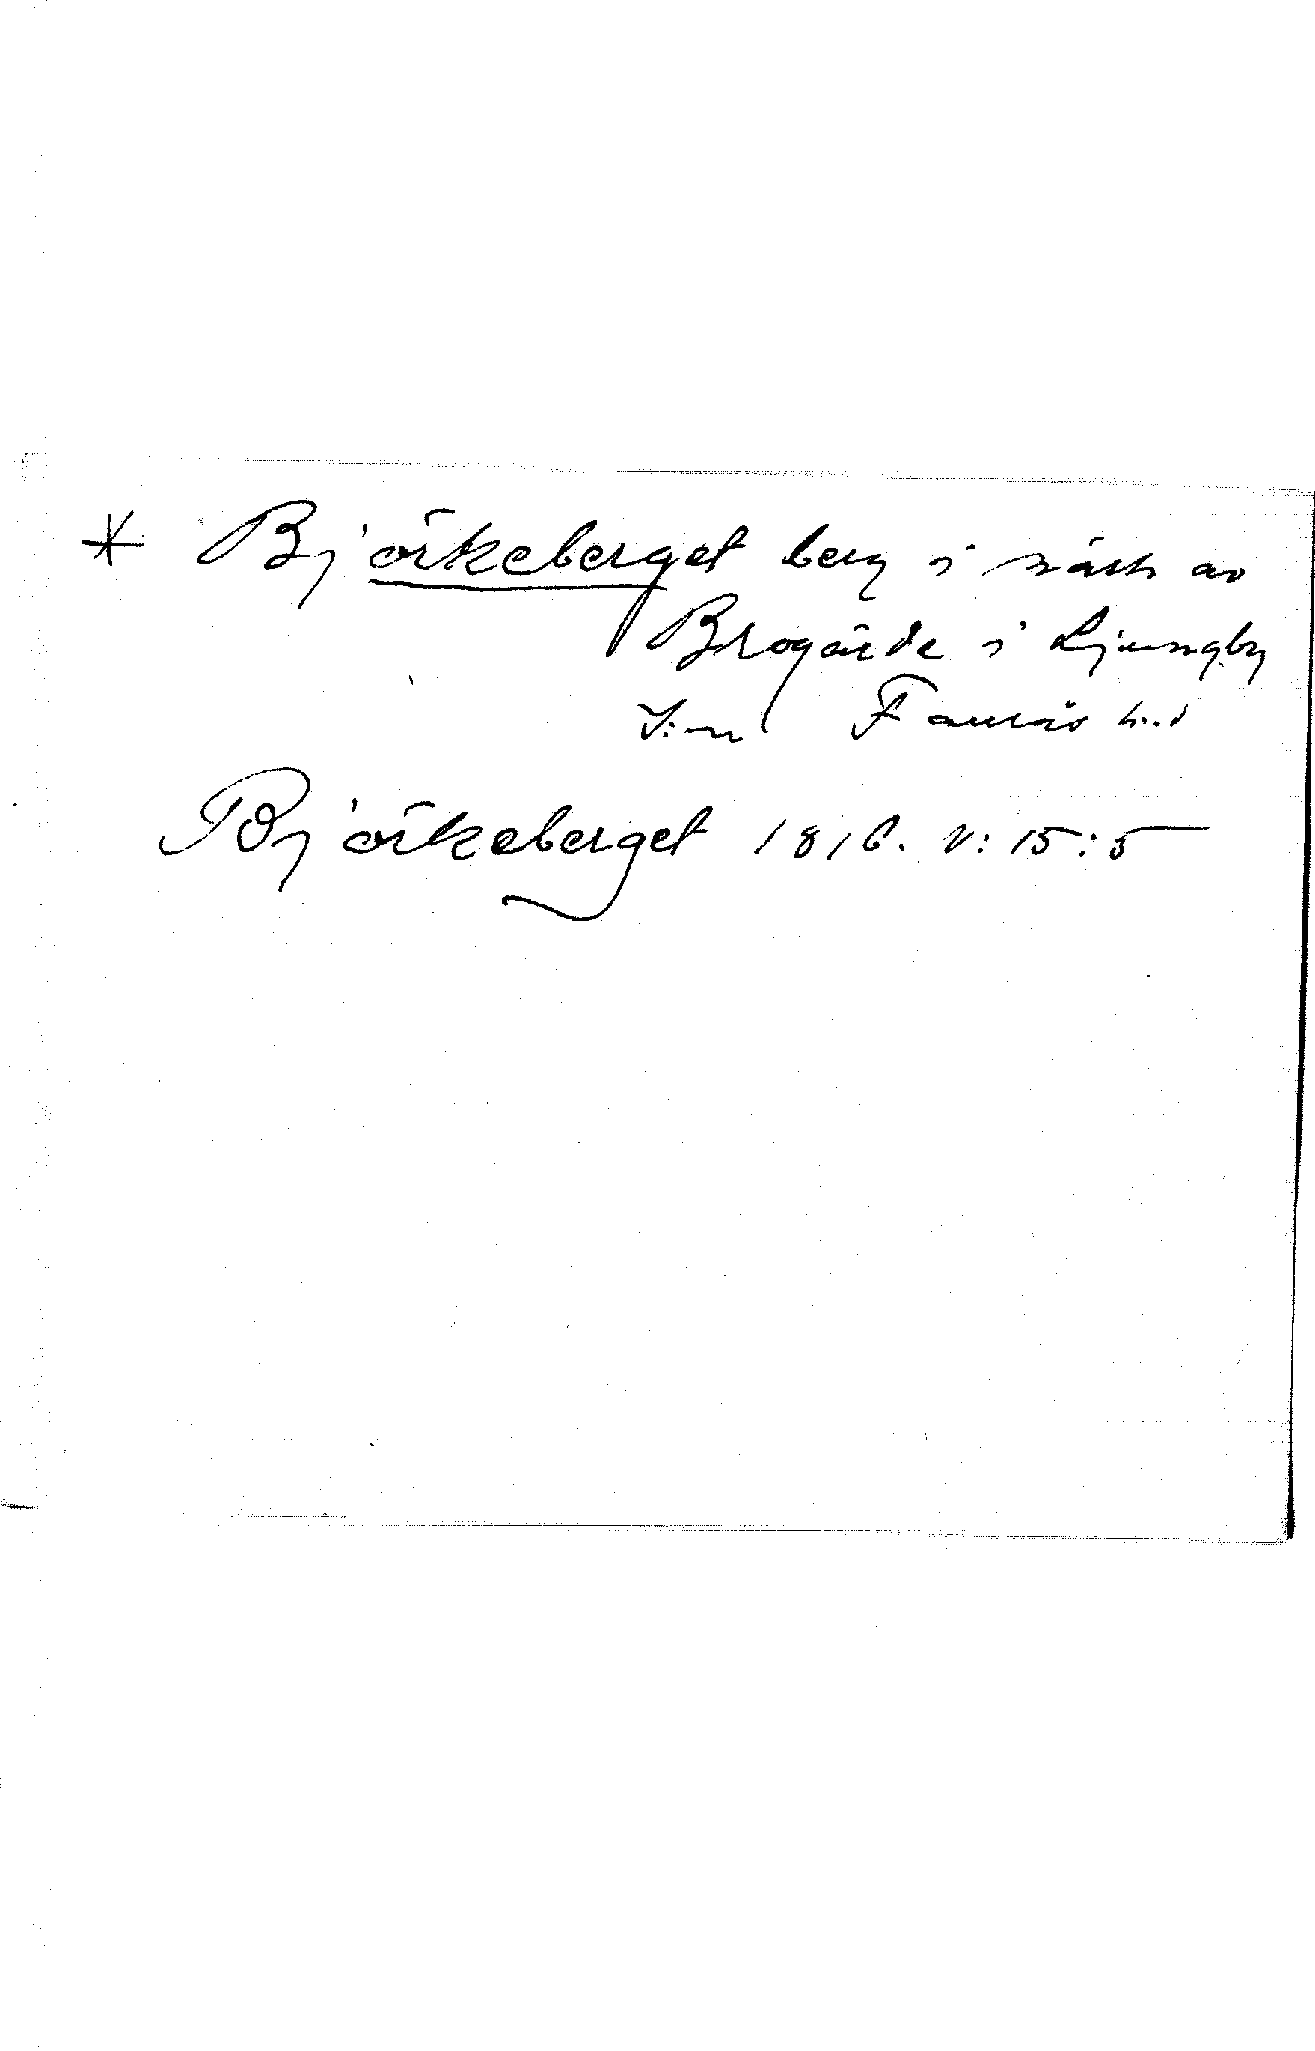 * Björkeberget berg i närh av
Brogärde i Ljungby
S:n Faurås h..d
Björkeberget 1816. V: 15:5